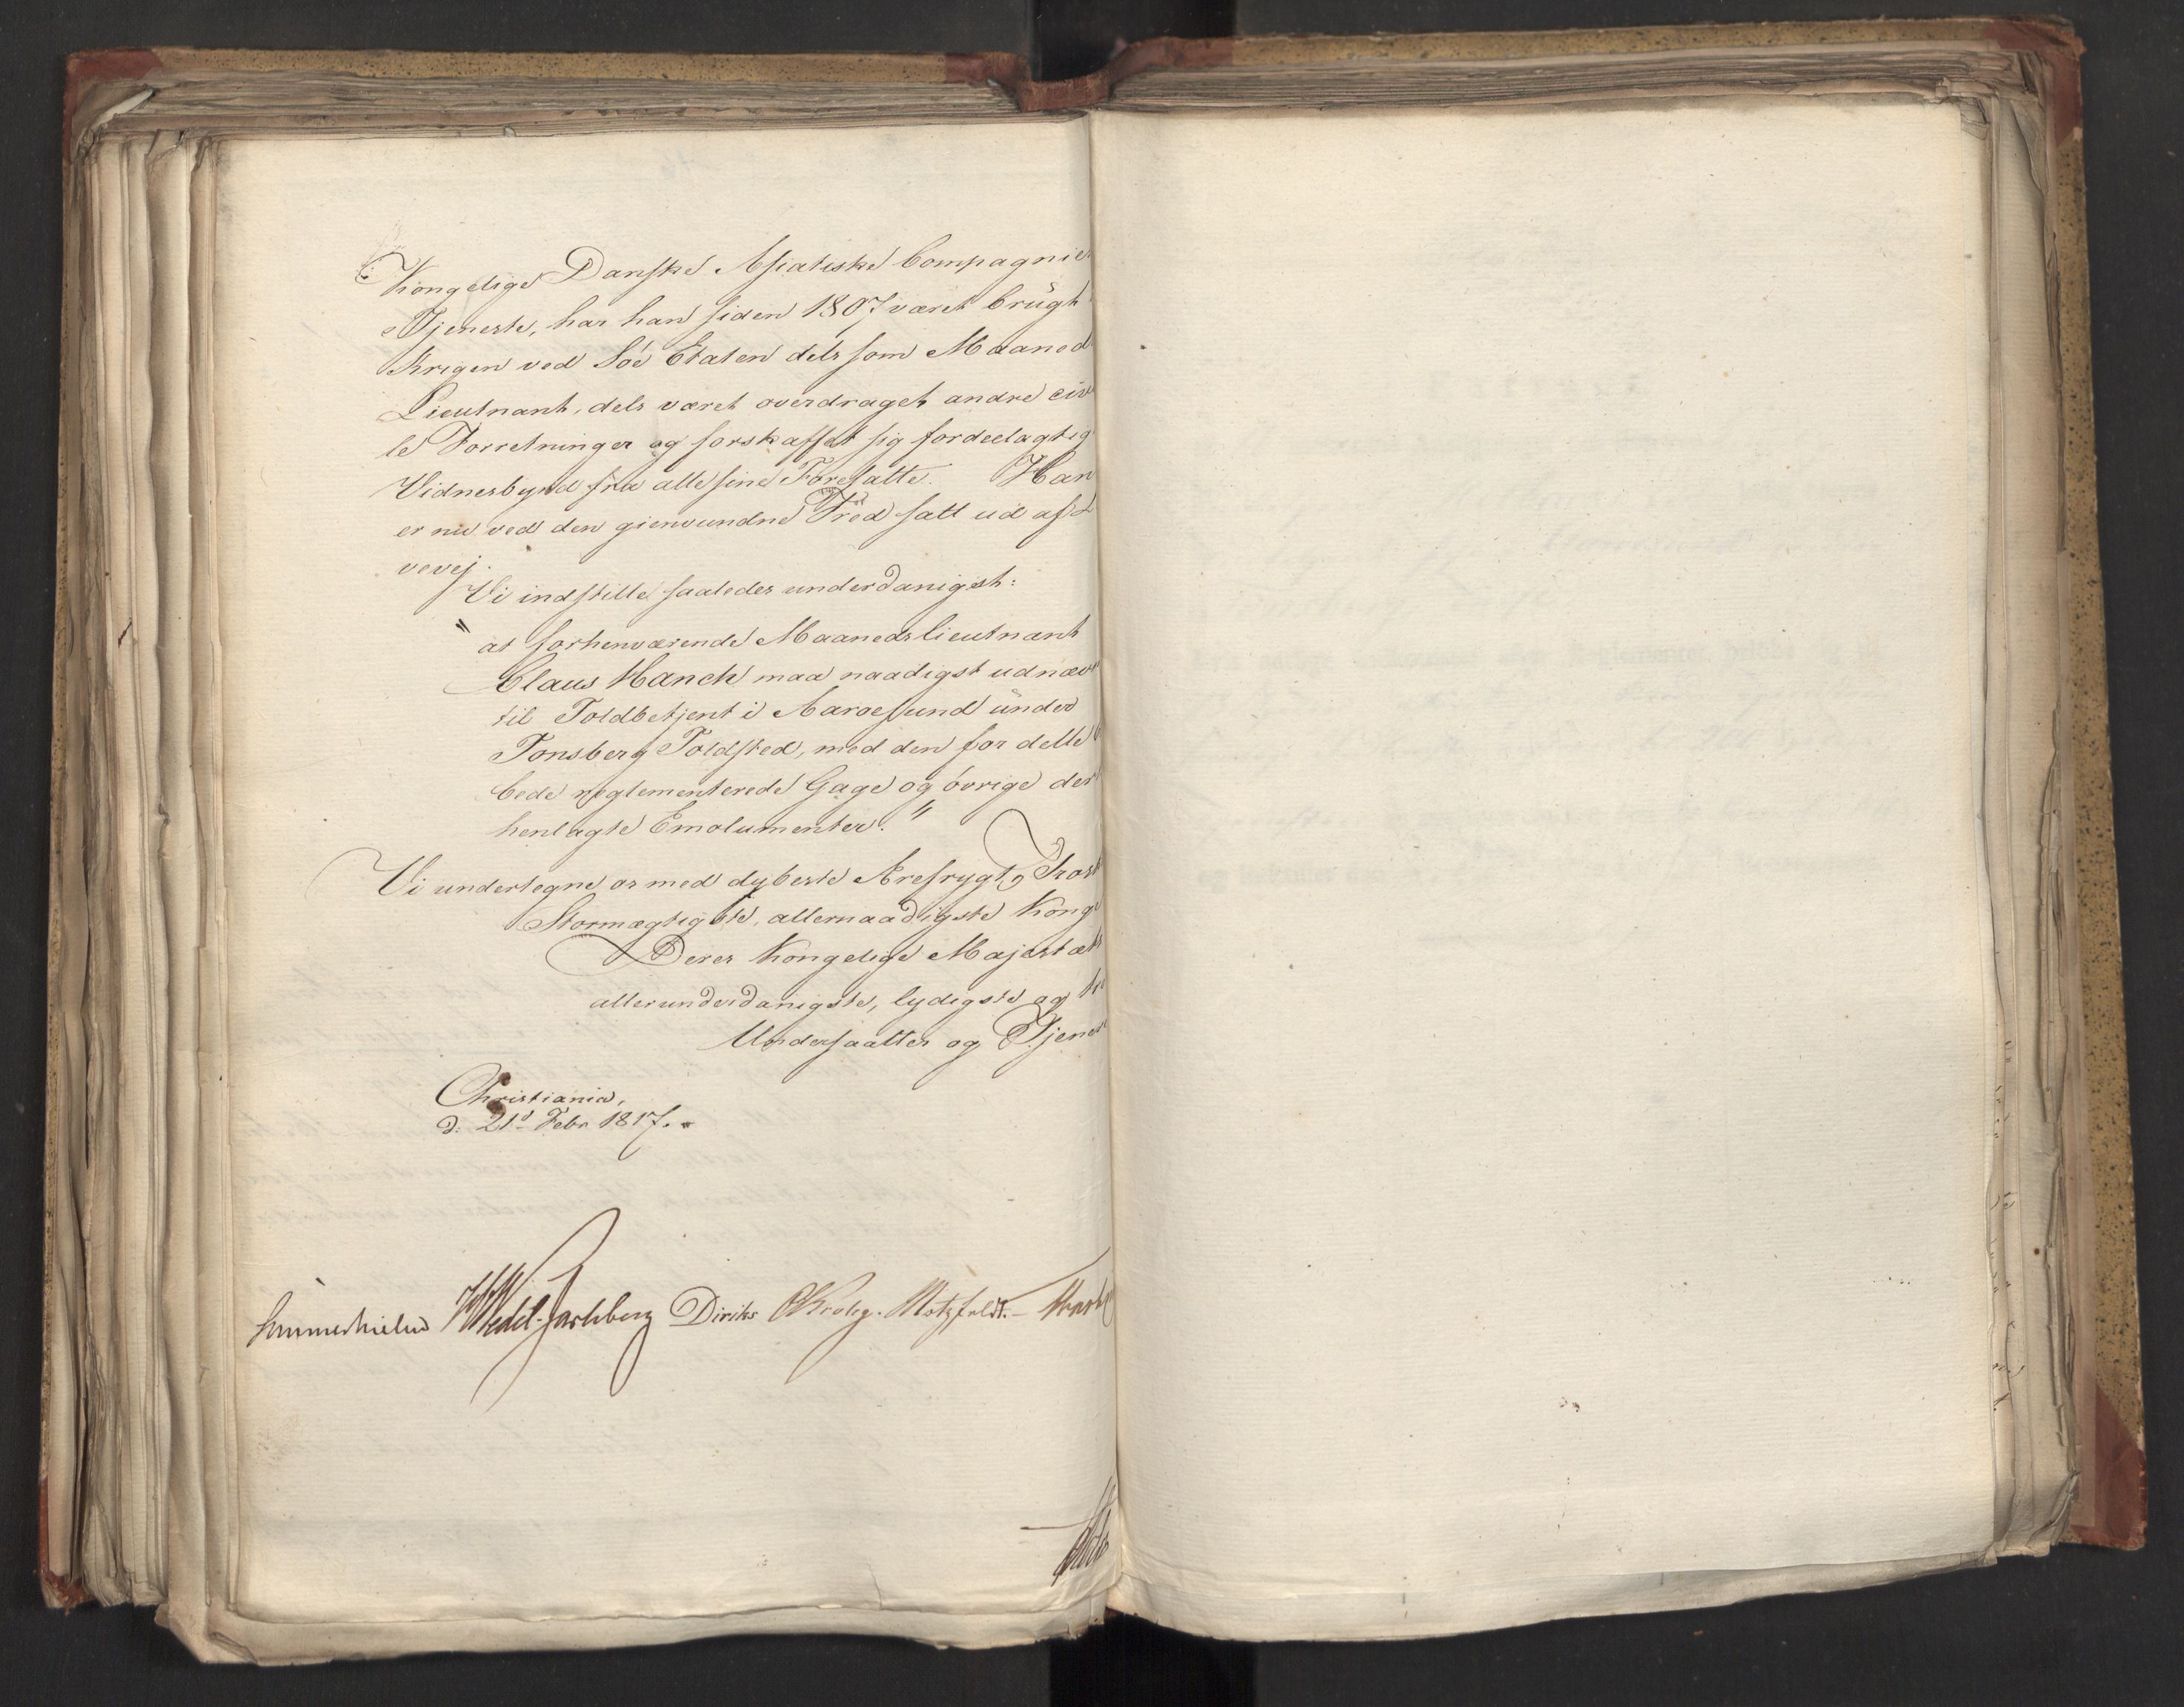 Kongelige Danske Asiatiske Compagnie
Tjeneste, har han siden 1807 været brugt
Krigen ved Søe Etaten dels som Maaned
Lieutnant, dels været overdraget andre civ
le Forretninger og forskaffet sig fordeelagtig
Vidnesbyrd fra alle sine Foresatte. Han
er nu ved den gienvundne Fred satt ud af L
vevej.
Vi indstille saaledes underdanigst:
"at forhenværende Maanedslieutnant
Claus Hanch maa naadigst udnæv
til Toldbetjent i Aaroesund under
Tonsberg Toldsted, med den for dette
bede reglementerede Gage og øvrige der
henlagte Emolumenter."
Vi undertegne os med dybeste Ærefrygt,
Stormægtigste, allernaadigste Konge
Deres Kongelige Majestæts
allerunderdanigste, lydigste og
Undersaatter og Tjene
Christiania,
d: 21d Febr 1817.
Sommerhielm Wedel-Jarlsberg Diriks Krohg. Motzfeldt.